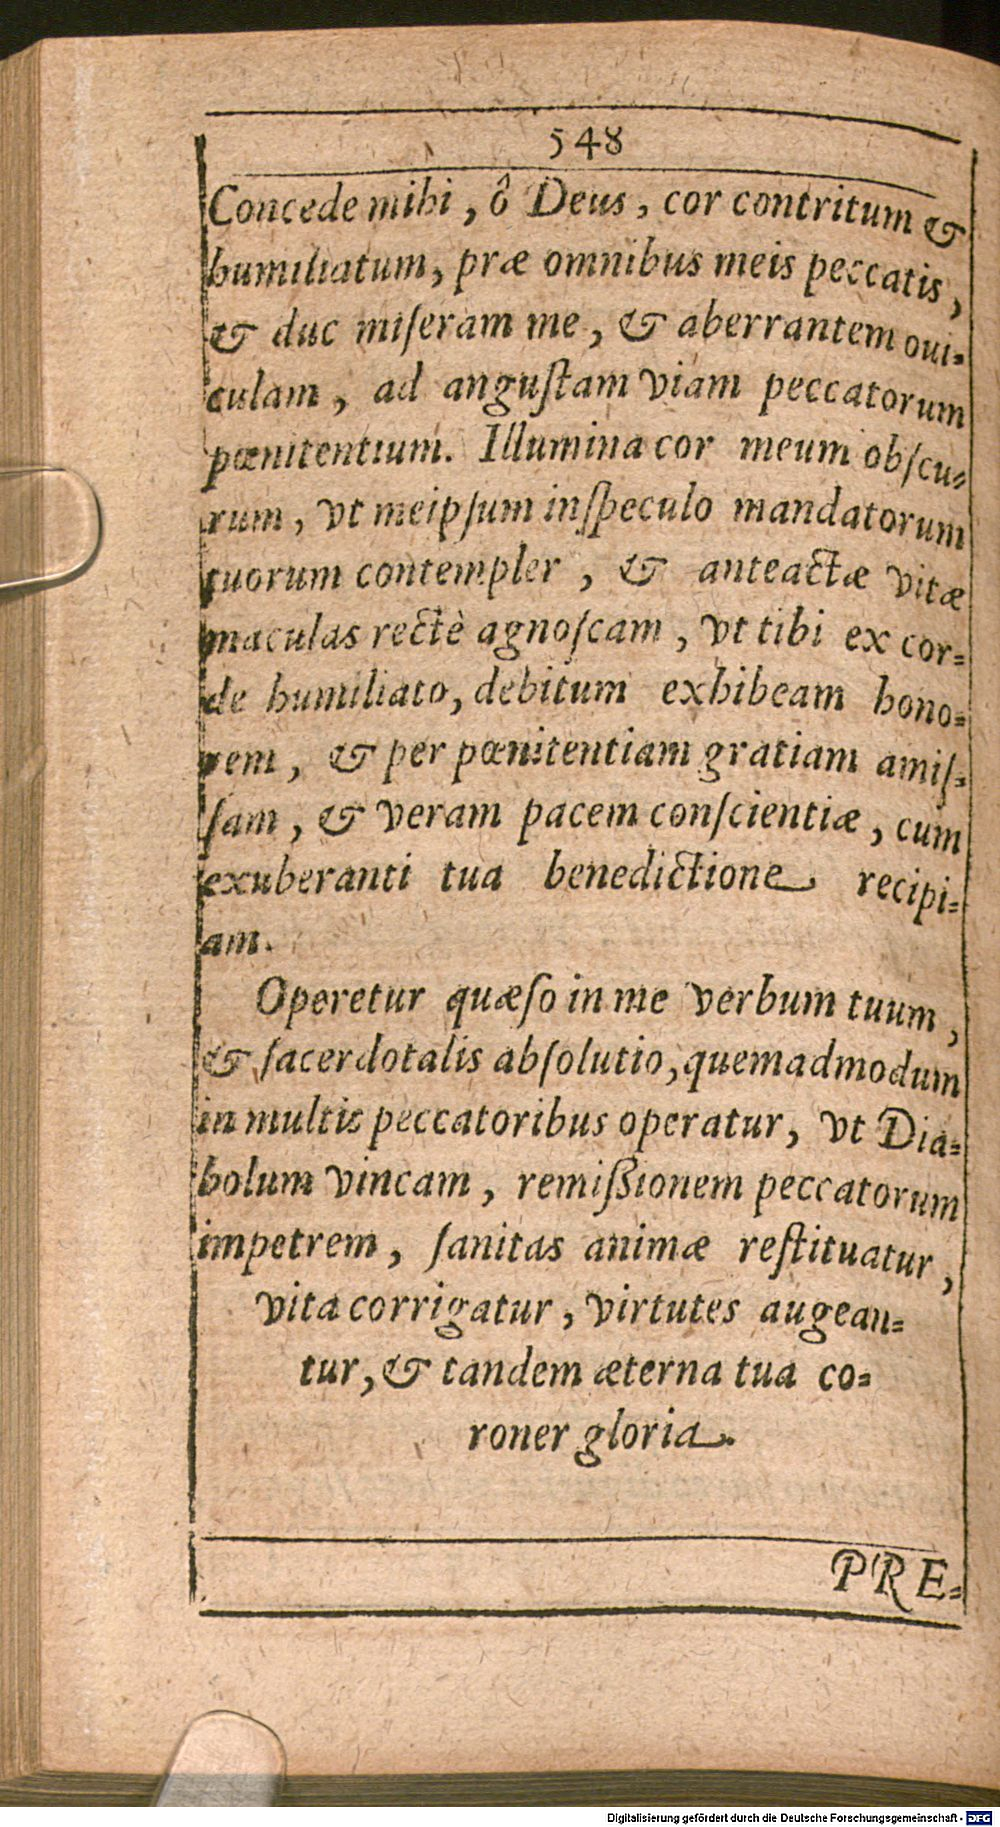 548
Concede mihi, ô Deus, cor contritum &
humiliatum, præ omnibus meis peccatis,
& duc miſeram me, & aberrantem oui=
culam, ad anguſtam viam peccatorum
pœnitentium. Illumina cor meum obſcu=
rum, vt meipſum inſpeculo mandatorum
tuorum contempler, & anteactæ vitæ
maculas rectè agnoſcam, vt tibi ex cor=
de humiliato, debitum exhibeam hono=
rem, & per pœnitentiam gratiam amiſ=
ſam, & veram pacem conſcientiæ, cum
exuberanti tua benedictione recipi=
am.
Operetur quæſo in me verbum tuum,
& ſacerdotalis abſolutio, quemadmodum
in multis peccatoribus operatur, vt Dia=
bolum vincam, remißionem peccatorum
impetrem, ſanitas animæ reſtituatur,
vita corrigatur, virtutes augean=
tur, & tandem æterna tua co=
roner gloria.
PRE=
Digitalisierung gefördert durch die Deutsche Forschungsgemeinschaft - DFG